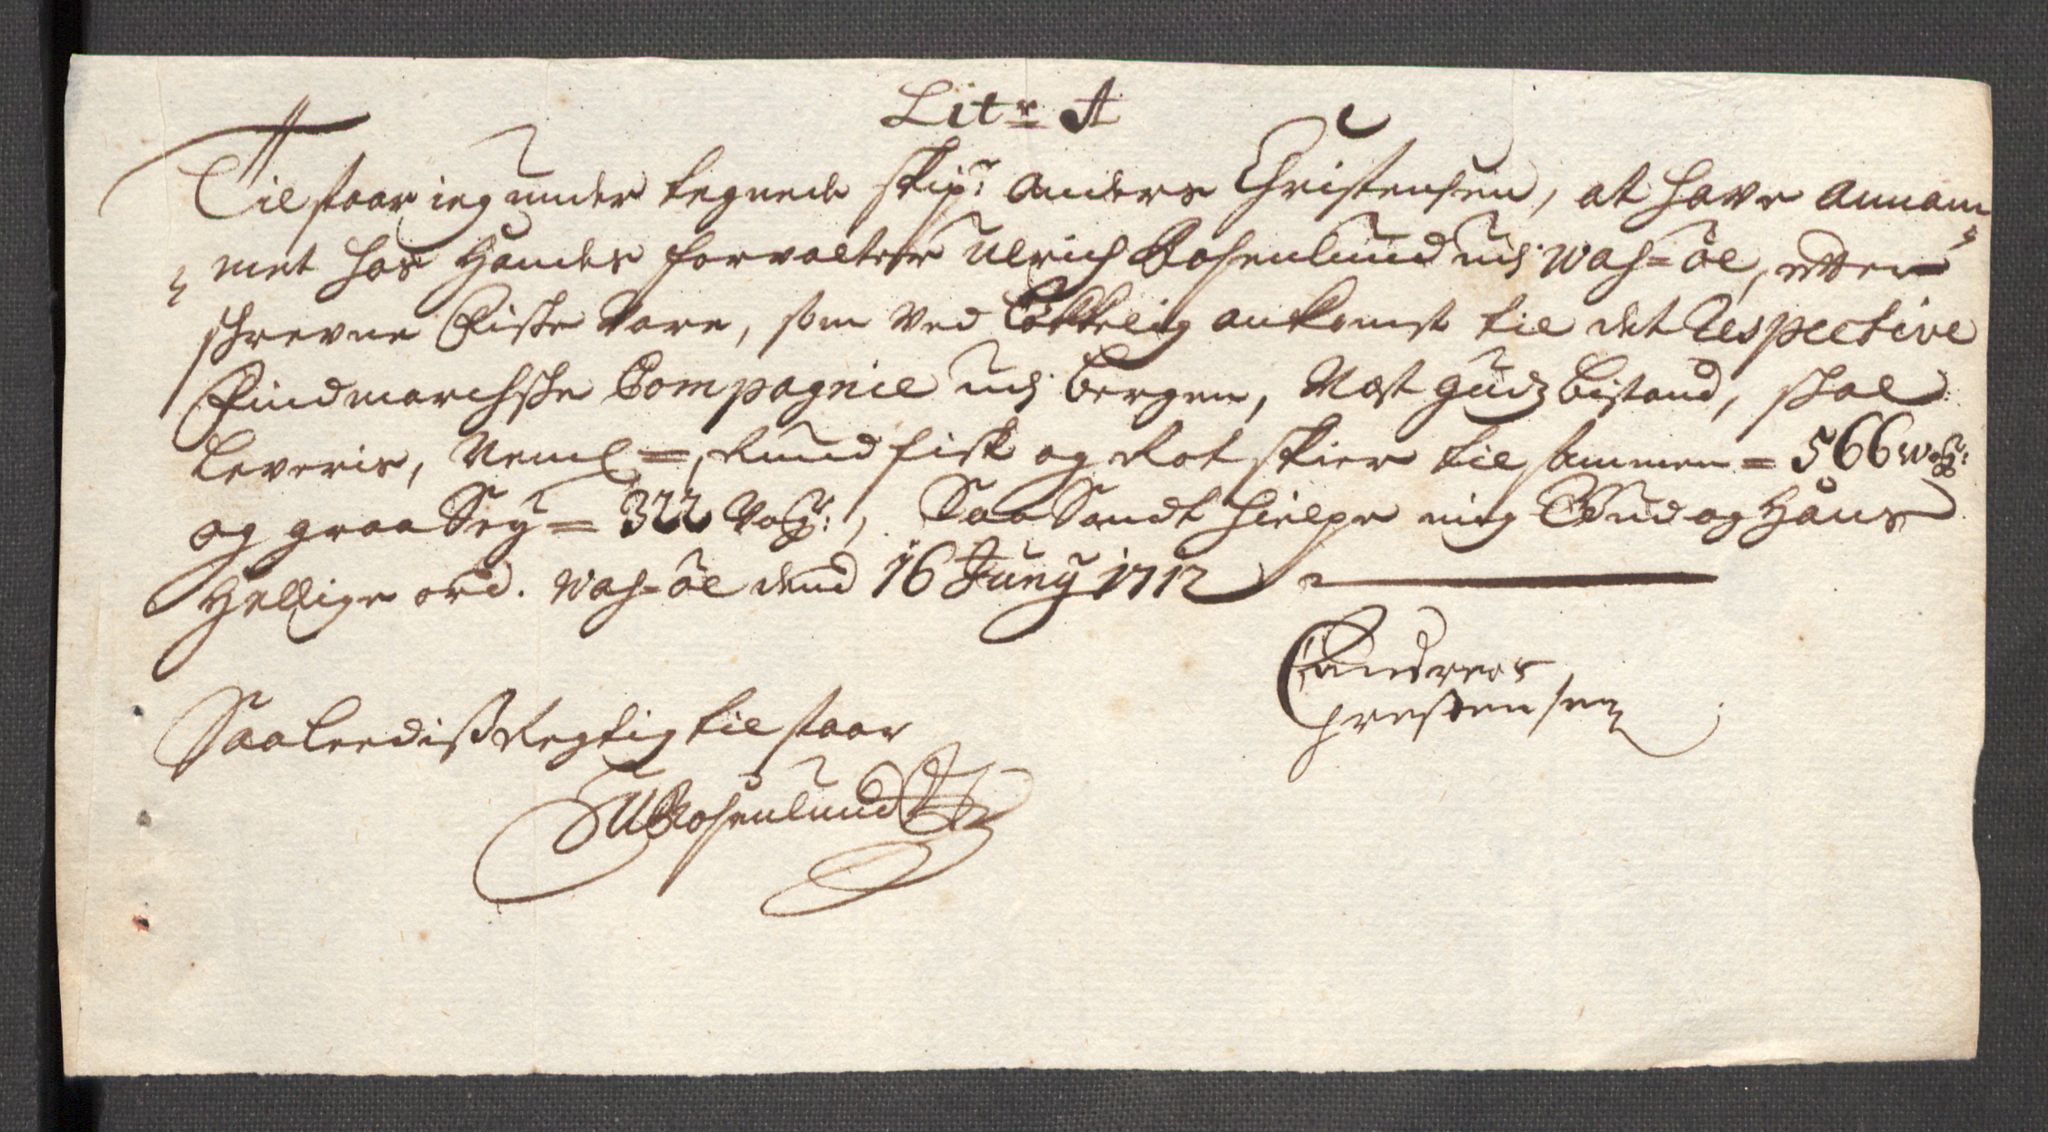 Litr A
Tilstaar ieg under tegnede Skipr: Anders Christensen, at have annam
met hos Handels forvalter Ulrich Rosenlund udj Was=öe, effter
schrevne Fiske Vare, som ved Løkkelig ankomst til det Respective
Findmarchske Compagnie udj Bergen, Næst Gudz bistand, skal
Leveris, Neml =, Rundfisk og Rotskier til sammen = 566 Wog:
og graa Sey = 322 Vog:, Saa Sandt hielpe mig Gud og Hans
Hellige ord. Was=öe dend 16 Juny 1712
Andreas
Chrestensen
Saaleedis Regtig tilstaar
U Rosenlund